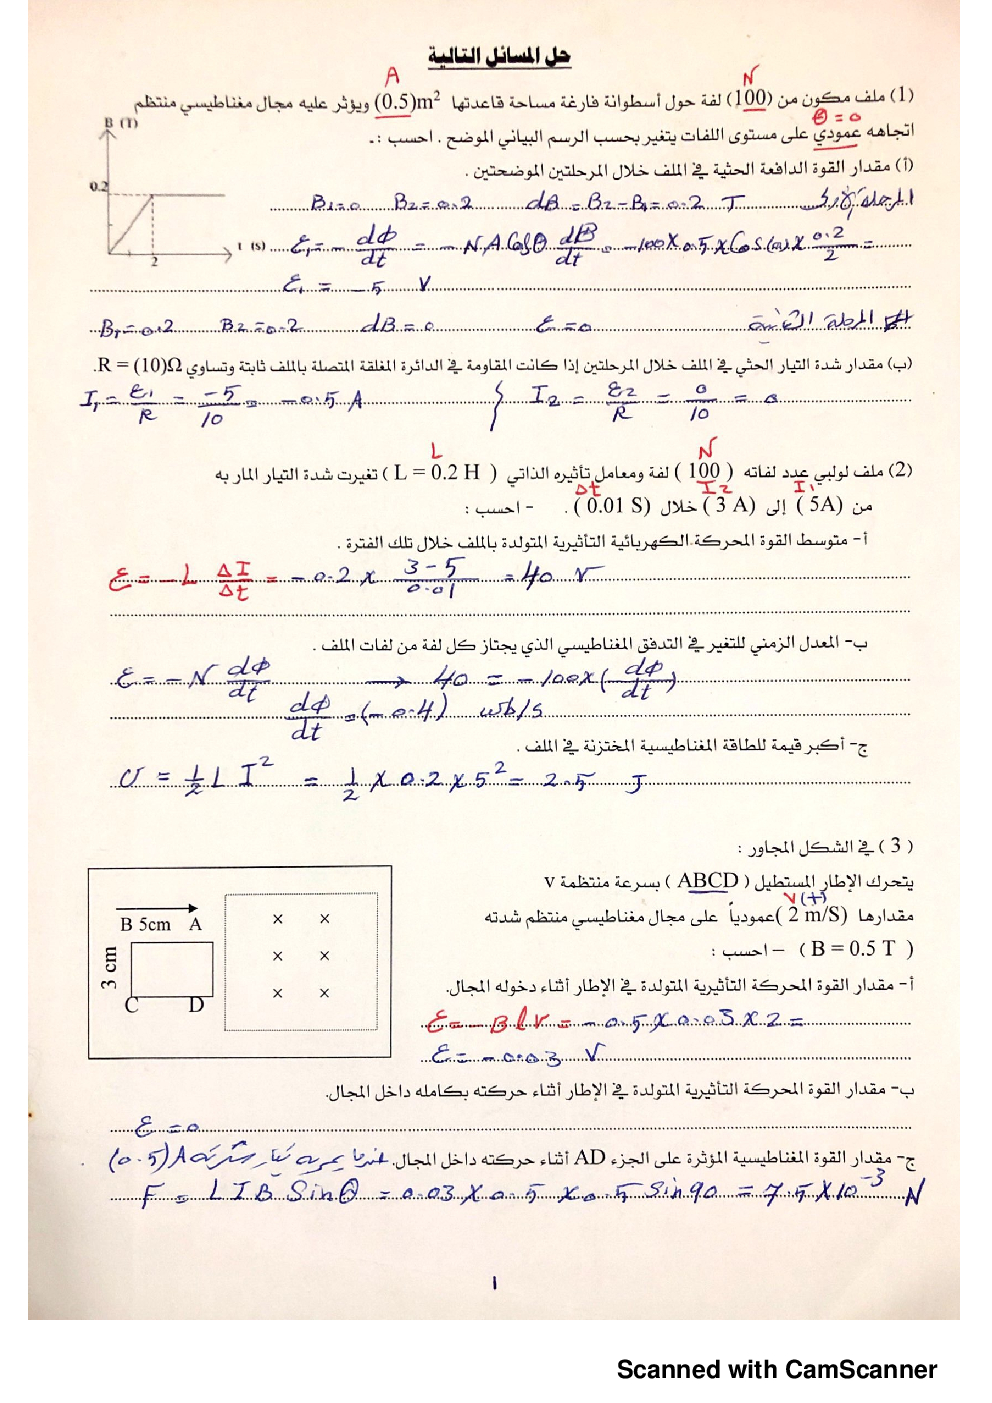 حل المسائل التالية
A N
(1) ملف مكون من (100) لفة حول أسطوانة فارغة مساحة قاعدتها (0.5)m² ويؤثر عليه مجال مغناطيسي منتظم
θ = 0
اتجاهه عمودي على مستوى اللفات يتغير بحسب الرسم البياني الموضح . احسب :ـ
B (T)
0.2
2
t (s)
(أ) مقدار القوة الدافعة الحثية في الملف خلال المرحلتين الموضحتين .
المرحلة الأولى B₁=0 B₂=0.2 dB = B₂-B₁=0.2 T
ε₁ = - dΦ/dt = - N A Cosθ dB/dt = -100 x 0.5 x Cos(0) x 0.2/2 =
ε₁ = -5 V
المرحلة الثانية B₁=0.2 B₂=0.2 dB=0 ε=0
(ب) مقدار شدة التيار الحثي في الملف خلال المرحلتين إذا كانت المقاومة في الدائرة المغلقة المتصلة بالملف ثابتة وتساوي R = (10)Ω.
I₁ = ε₁/R = -5/10 = -0.5 A } I₂ = ε₂/R = 0/10 = 0
L N
(2) ملف لولبي عدد لفاته ( 100 ) لفة ومعامل تأثيره الذاتي ( L = 0.2 H ) تغيرت شدة التيار المار به
Δt I₂ I₁
من (5A ) إلى (3 A ) خلال (0.01 S ) . - احسب :
أ- متوسط القوة المحركة الكهربائية التأثيرية المتولدة بالملف خلال تلك الفترة .
ε = -L ΔI/Δt = -0.2 x 3-5/0.01 = 40 V
ب- المعدل الزمني للتغير في التدفق المغناطيسي الذي يجتاز كل لفة من لفات الملف .
ε = - N dΦ/dt → 40 = -100x(dΦ/dt)
dΦ/dt = (-0.4) wb/s
ج- أكبر قيمة للطاقة المغناطيسية المختزنة في الملف .
U = ½ L I² = ½ x 0.2 x 5² = 2.5 J
( 3 ) في الشكل المجاور :
يتحرك الإطار المستطيل ( ABCD ) بسرعة منتظمة v
V(+)
مقدارها (2 m/S )عمودياً على مجال مغناطيسي منتظم شدته
( B = 0.5 T ) – احسب :
B 5cm A
3 cm
C D
× ×
× ×
× ×
أ- مقدار القوة المحركة التأثيرية المتولدة في الإطار أثناء دخوله المجال.
ε = -B l V = -0.5 x 0.03 x 2 =
ε = -0.03 V
ب- مقدار القوة المحركة التأثيرية المتولدة في الإطار أثناء حركته بكامله داخل المجال.
ε = 0
ج- مقدار القوة المغناطيسية المؤثرة على الجزء AD أثناء حركته داخل المجال. عندما يمر به تيار شدته (0.5)A
F = L I B Sinθ = 0.03 x 0.5 x 0.5 Sin 90 = 7.5 x 10⁻³ N
1
Scanned with CamScanner